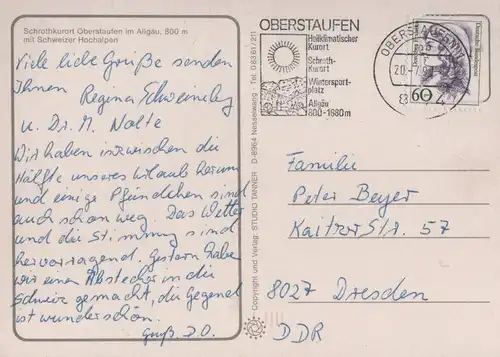 Schrothkurort Oberstaufen im Allgäu, 800 m
mit Schweizer Hochalpen
Viele liebe Grüße senden
Ihnen
Regina Schweineberg
u. Dr. M. Nolte
Wir haben inzwischen die
Hälfte unseres Urlaubs herum
und einige Pfündchen sind
auch schon weg. Das Wetter
und die Stimmung sind
hervorragend. Gestern haben
wir einen Abstecher in die
Schweiz gemacht, die Gegend
ist wunderschön.
Gruß. D.O.
Copyright und Verlag: STUDIO TANNER D-8964 Nesselwang · Tel. 08361/211
OBERSTAUFEN
Heilklimatischer
Kurort
Schroth-
Kurort
Wintersport-
platz
Allgäu
800-1680m
OBERSTAUFEN
20.-7.9
60
Familie
Peter Beyer
Kaitzer Str. 57
8027 Dresden
DDR